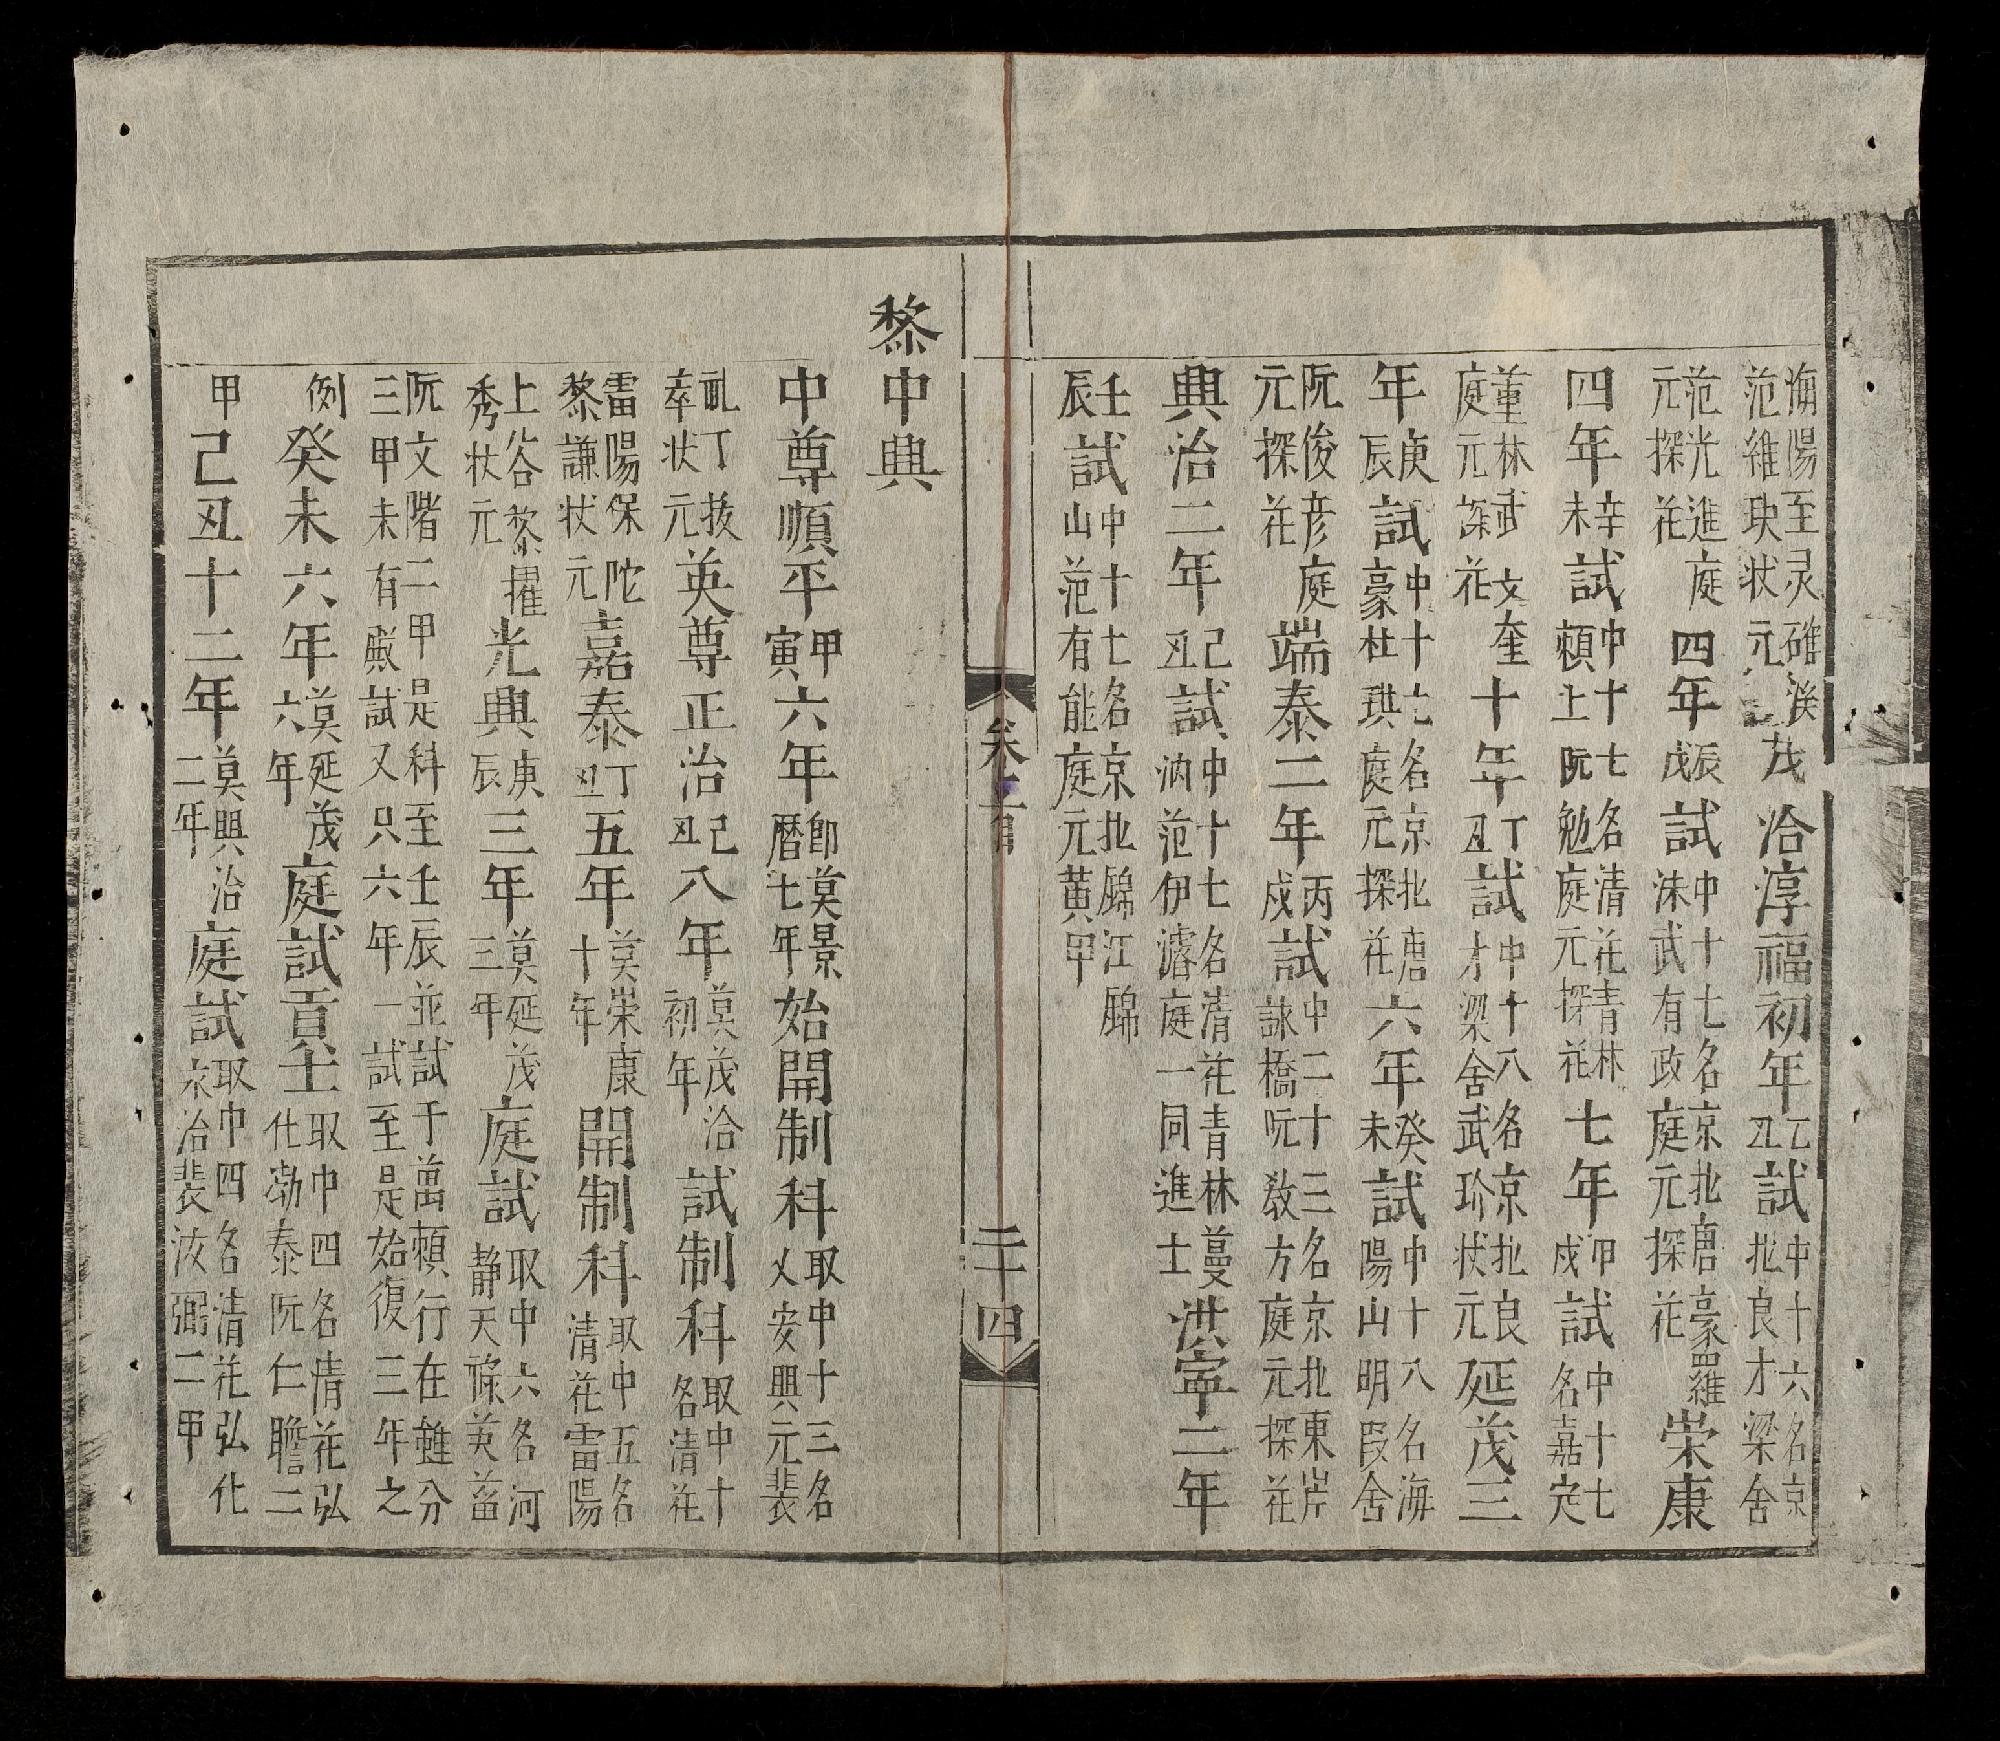 海陽至灵碓溪
范維玦状元茂洽淳福初年乙丑試中十六名京
北良才梁舍
范光進庭
元探花四年戊辰試中十七名京北唐豪罗雍
洙武有政庭元探花崇康
四年辛未試中十七名清花青林
頓上阮勉庭元探花七年甲戌試中十七
名嘉定
董林武文奎
庭元探花十年丁丑試中十八名京北良
才梁舍武玠状元延茂三
年庚辰試中十七名京北唐
豪杜珙庭元探花六年癸未試中十八名海
陽山明段舍
阮俊彦庭
元探花端泰二年丙戌試中二十三名京北東岸
詠橋阮教方庭元探花
興治二年己丑試中十七名清花青林蔓
汭范伊濬庭一同進士洪寧二年
壬辰試中十七名京北錦江錦
山范有能庭元黄甲
卷之首
二十四
黎中興
中尊順平甲寅六年即莫景
曆七年始開制科取中十三名
乂安興元裴
乿丁拔
萃状元英尊正治己丑八年莫茂洽
初年試制科取中十
名清花
雷陽保陀
黎謙状元嘉泰丁丑五年莫崇康
十年開制科取中五名
清花雷陽
上谷黎擢
秀状元光興庚辰三年莫延茂
三年庭試取中六名河
静天祿英畨
阮文階二甲是科至壬辰並試于萬頼行在雖分
三甲未有殿試又只六年一試至是始復三年之
例癸未六年莫延茂
六年庭試貢士取中四名清花弘
化渤泰阮仁瞻二
甲己丑十二年莫興治
二年庭試取中四名清花弘化
永治裴汝弼二甲